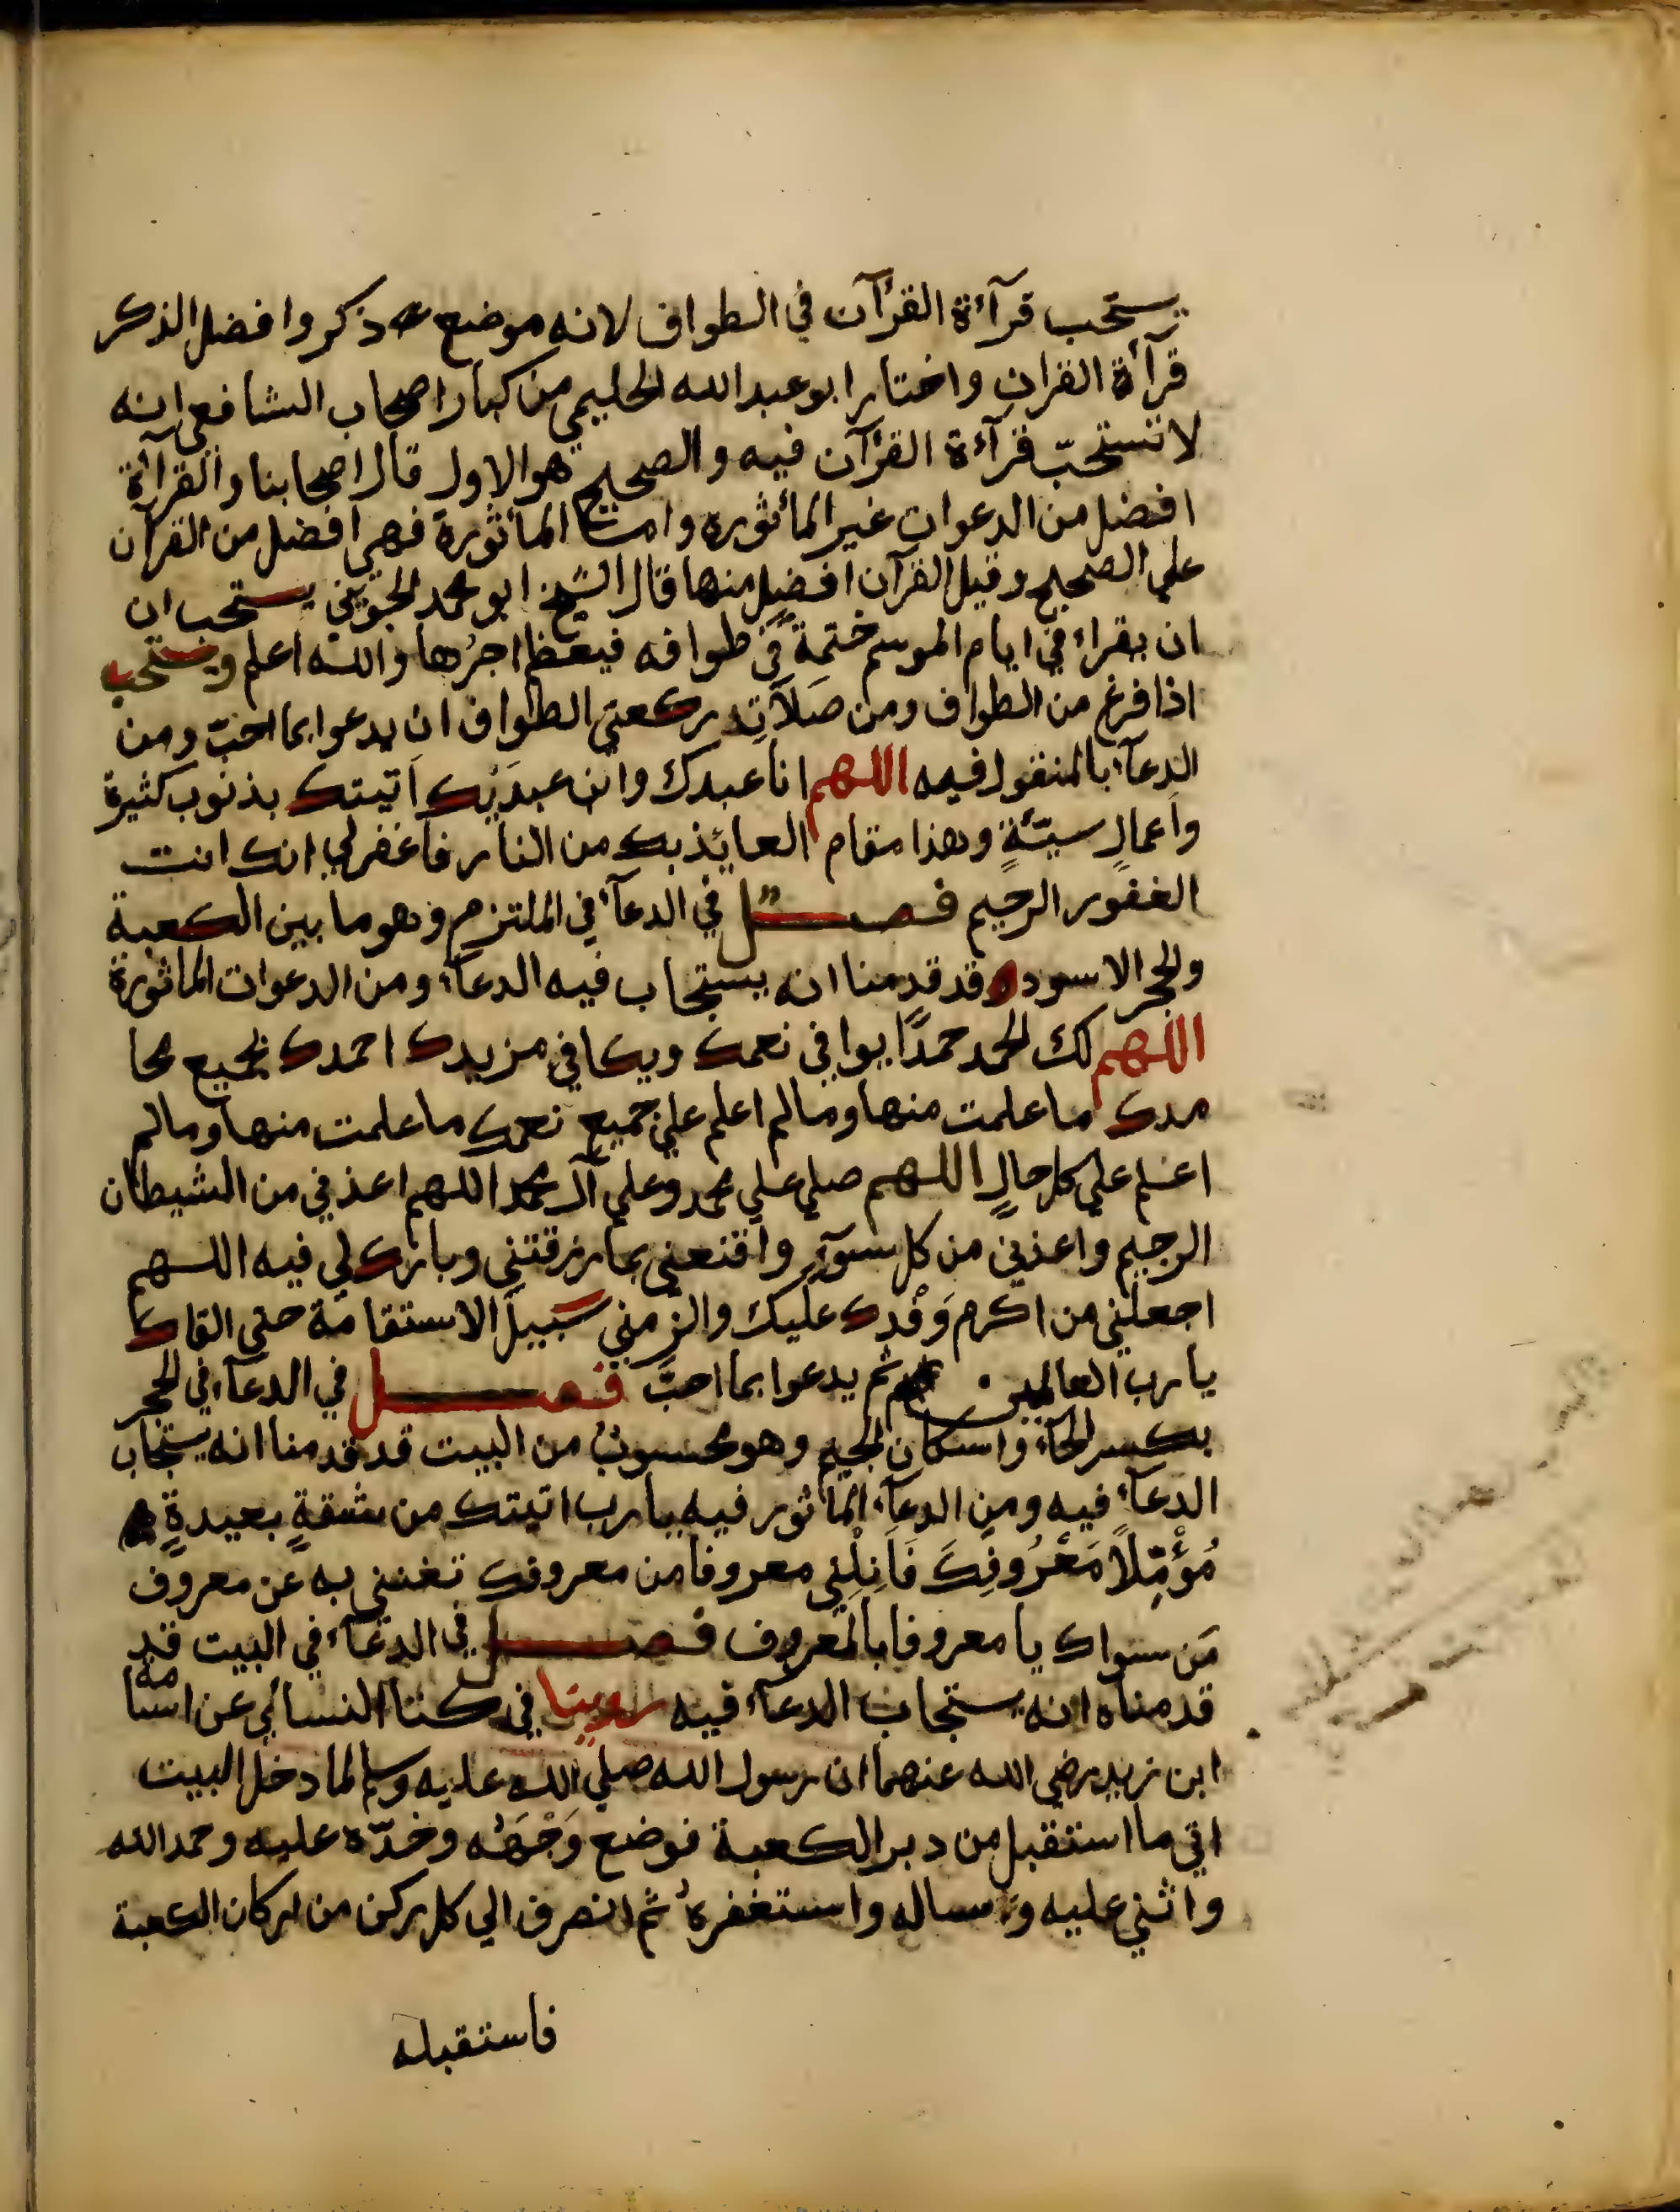 يستحب قرآءة القرآن في الطواف لانه موضع ذكر وافضل الذكر
قرآة القران واختار ابو عبد الله الحليمي من كبار اصحاب الشافعي انه
لا تستحبّ قرآءة القرآن فيه والصحيح هو الاول قال اصحابنا والقرآة
افضل من الدعوات غير المأثوره وامـا المأثورة فهي افضل من القرآن
علي الصحيح وقيل القرآن افضل منها قال الشيخ ابو محمد الجويني يستحب ان
ان يقراء في ايام الموسم ختمةً في طوافه فيعظم اجرُها والله اعلم ويستحب
اذا فرغ من الطواف ومن صَلَاتِه ركعتي الطواف ان يدعوا بما احبّ ومن
الدعآء المنقول فيه اللهم انا عبدك وابن عبدَيْك اَتيتك بذنوب كثيرة
واَعمالٍ سيّئةٍ وهذا مقام العائِذ بك من النار فاغفر لي انك انت
الغفور الرحيم فصـــل في الدعآء في الملتزم وهو ما بين الكعبة
والحجر الاسود وقد قدمنا انه يستجاب فيه الدعآء ومن الدعوات الماثورة
اللهم لك الحمد حمدًا يوافي نعمك ويكافي مزيدك احمدك بجميع محا
مدك ما علمت منها وما لم اعلم علي جميع نعمك ما علمت منها وما لم
اعلم علي كل حالٍ اللهم صلي علي محمد وعلي آل محمد اللهم اعذني من الشيطان
الرجيم واعذني من كل سوٓءٍ واَقنعني بما رزقتني وبارك لي فيه اللهم
اجعلني من اكرم وَفْدِك عليك والزمني سَبيلَ الاستقامة حتي القاك
يا رب العالمين ثم يدعوا بما احبَّ فصـــل في الدعآء في الحجر
بكسر الحآء واسكان الجيم وهو محسوبٌ من البيت قد قدمنا انه يستجاب
الدعآء فيه ومن الدعآء الماثور فيه يا رب اتيتك من شقةٍ بعيدةٍ
مُؤْمِّلاً مَعْرُوفِكَ فَاَنِلْنِي معروفا من معروفك تغنني به عن معروف
مَن سواك يا معروفا بالمعروف فصـــل في الدعآء في البيت قد
قدمناه انه يستجاب الدعآء فيه روينا في كتاب النسائي عن اسامة
ابن زيد رضي الله عنهما ان رسول الله صلي الله عليه وسلم لما دخل البيت
اتي ما استقبل من دبر الكعبة فوضع وَجْهَهُ وخدّه عليه وحمد الله
واثني عليه وساله واستغفرهُ ثم انصرف الي كل ركن من اركان الكعبة
فاستقبله